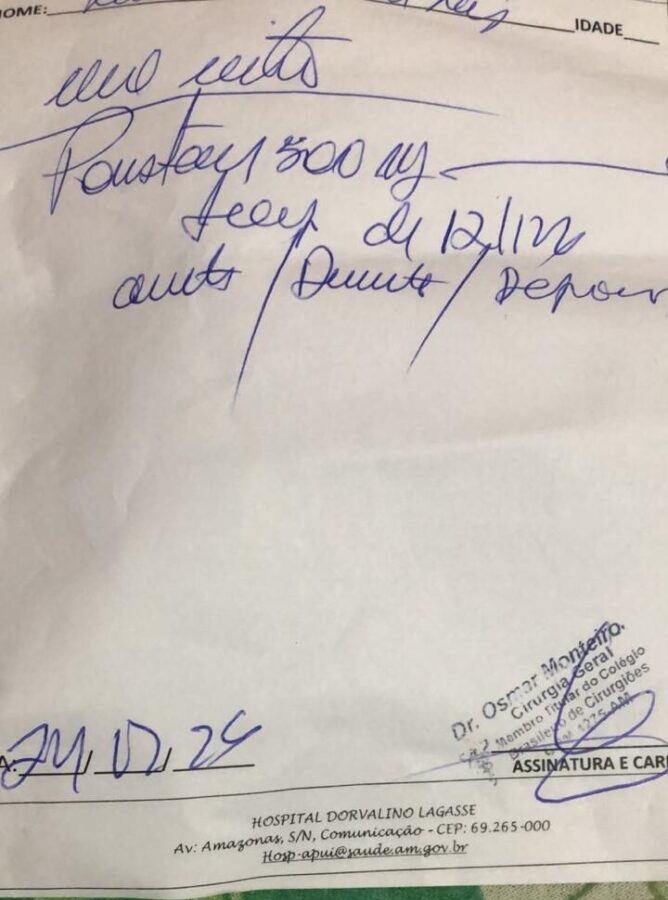 NOME:
IDADE
uso
Ponstan 500 mg
de 12/12h
antes / Durante / Depois
24/ /24
Dr. Osmar Monteiro
Cirurgia Geral
Membro Titular do Colégio
Brasileiro de Cirurgiões
1275-AM
ASSINATURA E CARI
HOSPITAL DORVALINO LAGASSE
Av: Amazonas, S/N, Comunicação - CEP: 69.265-000
Hosp-apui@saude.am.gov.br